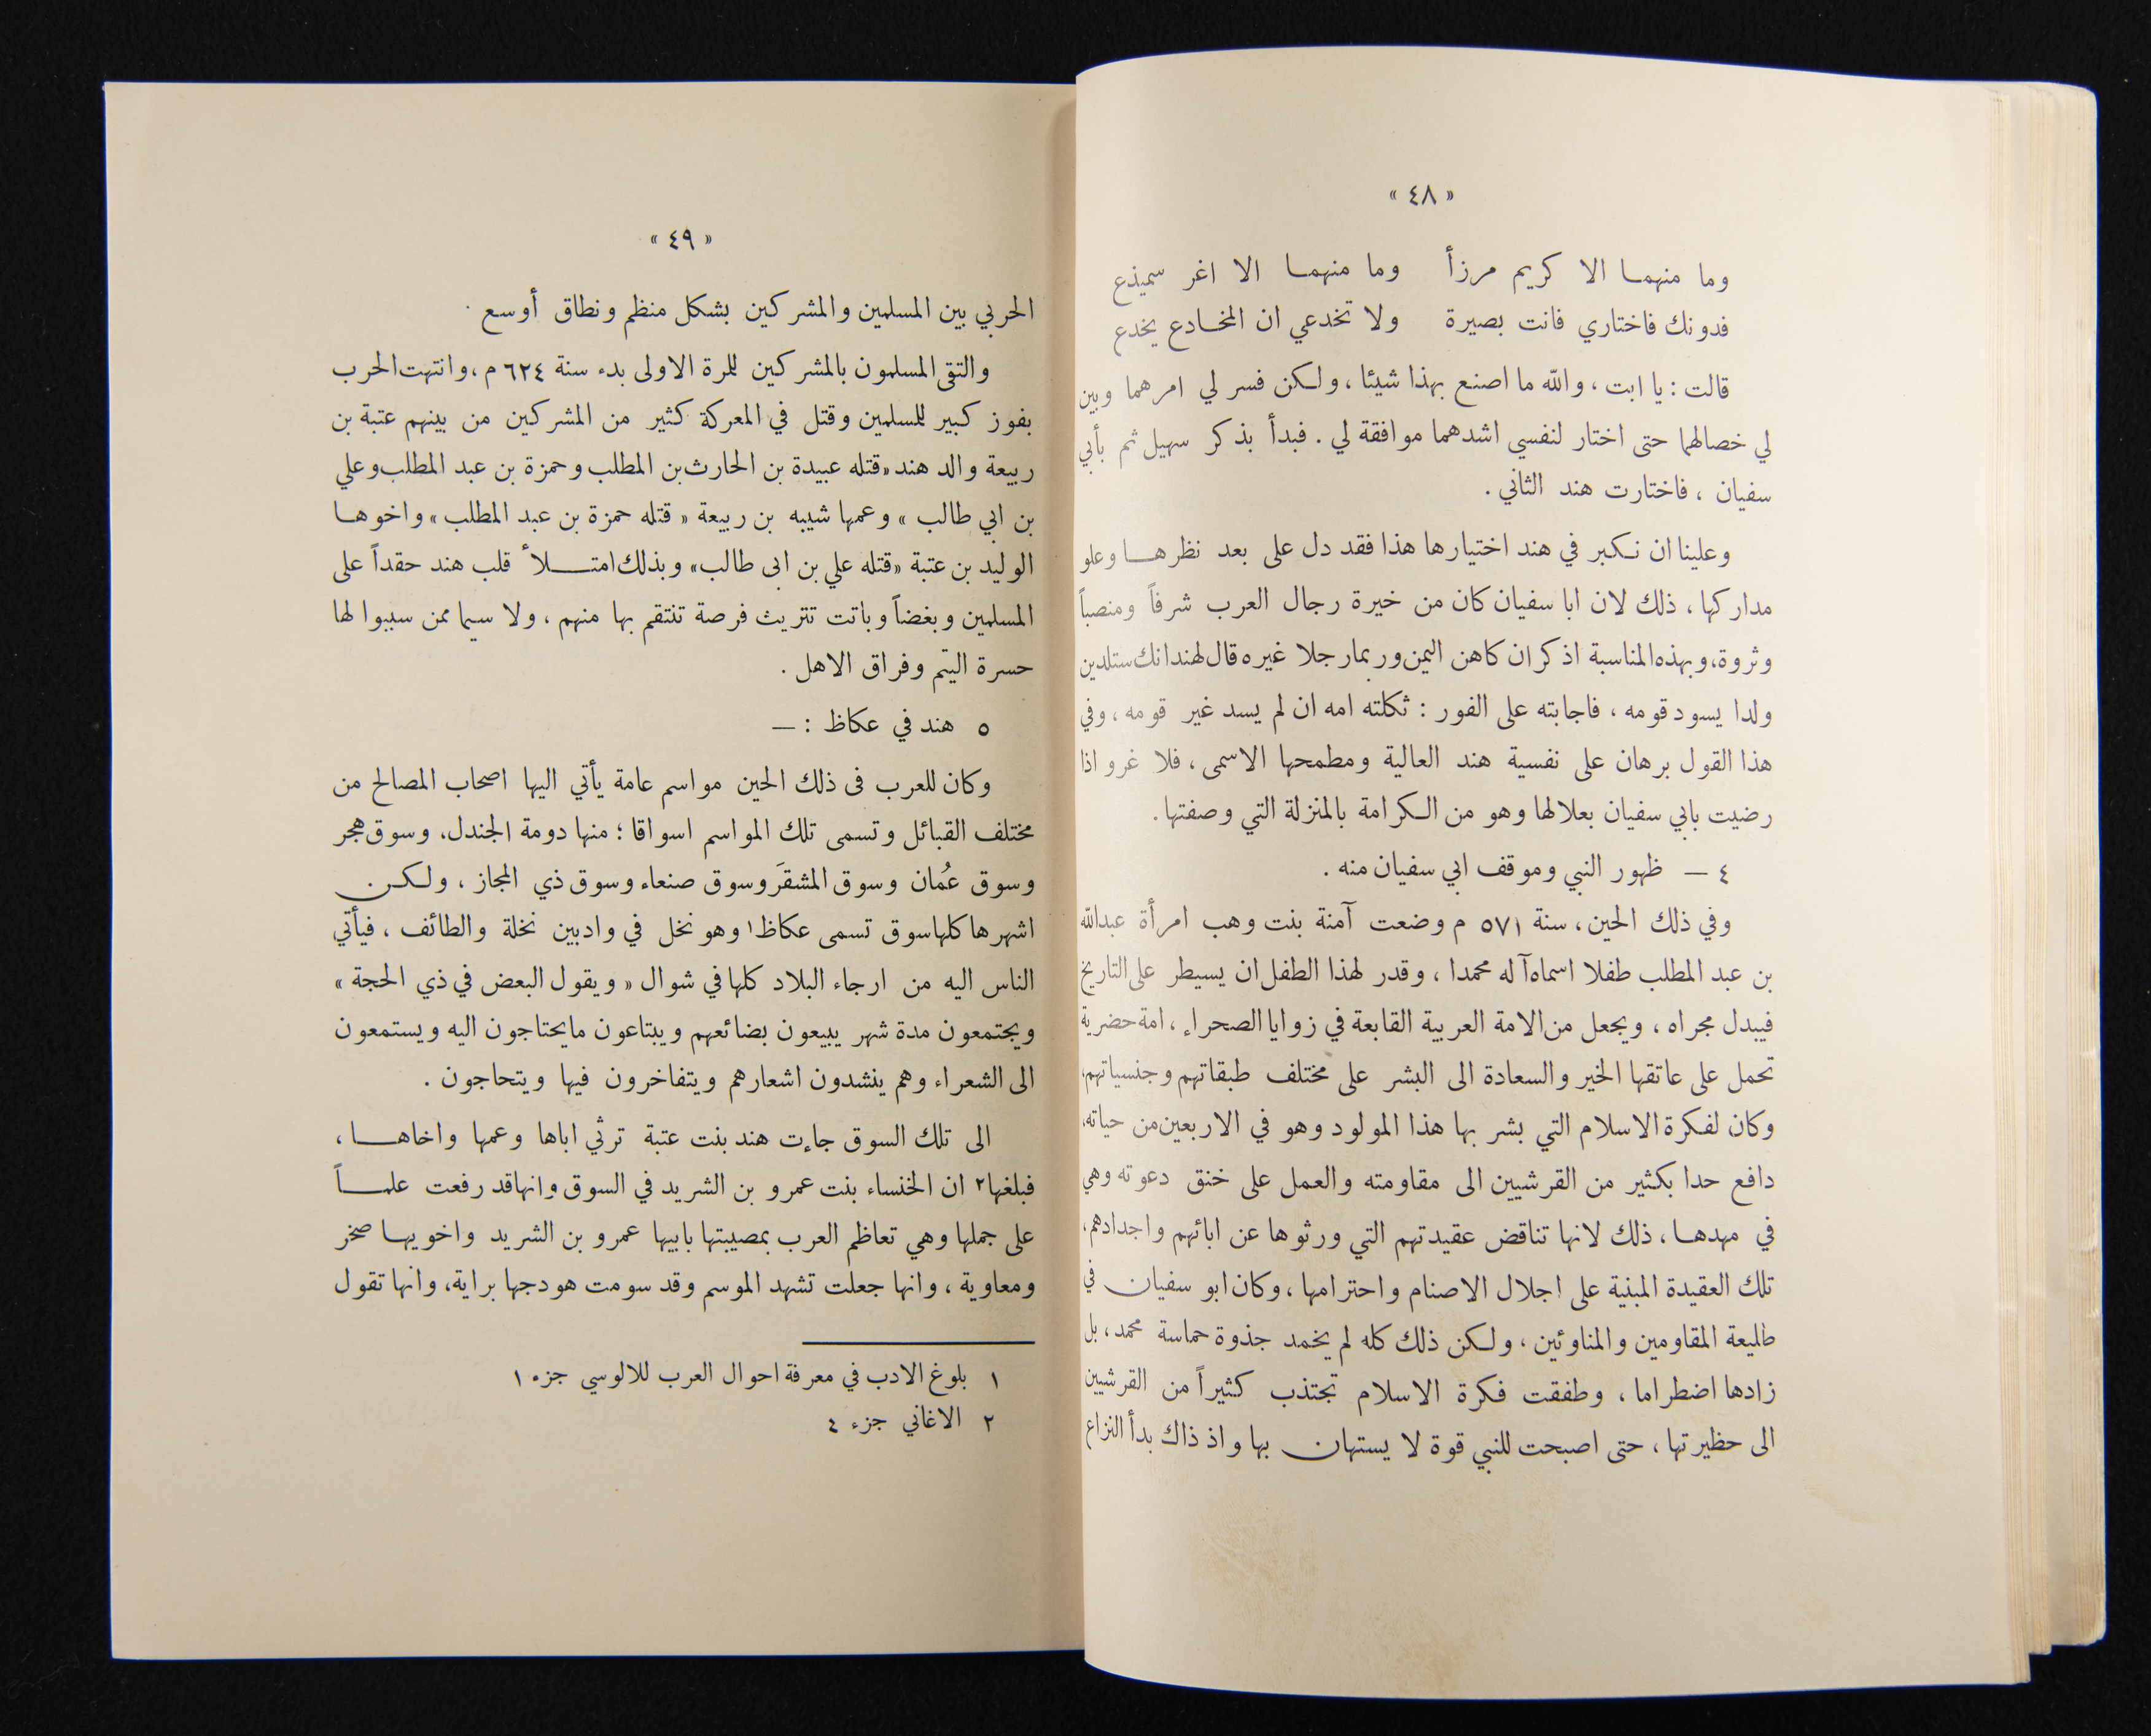 « ٤٨ »
وما منهما الا كريم مرزأ وما منهما الا اغر سميذع
فدونك فاختاري فانت بصيرة ولا تخدعي ان المخادع يخدع
قالت : يا ابت ، والله ما اصنع بهذا شيئا ، ولكن فسر لي امرهما وبين
لي خصالهما حتى اختار لنفسي اشدهما موافقة لي . فبدأ بذكر سهيل ثم بأبي
سفيان ، فاختارت هند الثاني .
وعلينا ان نكبر في هند اختيارها هذا فقد دل على بعد نظرها وعلو
مداركها ، ذلك لان ابا سفيان كان من خيرة رجال العرب شرفاً ومنصباً
وثروة، وبهذه المناسبة اذكر ان كاهن اليمن وربما رجلا غيره قال لهند انك ستلدين
ولدا يسود قومه ، فاجابته على الفور : ثكلته امه ان لم يسد غير قومه ، وفي
هذا القول برهان على نفسية هند العالية ومطمحها الاسمى ، فلا غرو اذا
رضيت بابي سفيان بعلا لها وهو من الكرامة بالمنزلة التي وصفتها .
٤ — ظهور النبي وموقف ابي سفيان منه .
وفي ذلك الحين ، سنة ٥٧١ م وضعت آمنة بنت وهب امرأة عبدالله
بن عبد المطلب طفلا اسماه آله محمدا ، وقدر لهذا الطفل ان يسيطر على التاريخ
فيبدل مجراه ، ويجعل من الامة العربية القابعة في زوايا الصحراء ، امة حضرية
تحمل على عاتقها الخير والسعادة الى البشر على مختلف طبقاتهم وجنسياتهم،
وكان لفكرة الاسلام التي بشر بها هذا المولود وهو في الاربعين من حياته،
دافع حدا بكثير من القرشيين الى مقاومته والعمل على خنق دعوته وهي
في مهدها ، ذلك لانها تناقض عقيدتهم التي ورثوها عن ابائهم واجدادهم،
تلك العقيدة المبنية على اجلال الاصنام واحترامها ، وكان ابو سفيان في
طليعة المقاومين والمناوئين ، ولكن ذلك كله لم يخمد جذوة حماسة محمد ، بل
زادها اضطراما ، وطفقت فكرة الاسلام تجتذب كثيراً من القرشيين
الى حظيرتها ، حتى اصبحت للنبي قوة لا يستهان بها واذ ذاك بدأ النزاع
« ٤٩ »
الحربي بين المسلمين والمشركين بشكل منظم ونطاق أوسع .
والتقى المسلمون بالمشركين للمرة الاولى بدء سنة ٦٢٤ م ، وانتهت الحرب
بفوز كبير للمسلمين وقتل في المعركة كثير من المشركين من بينهم عتبة بن
ربيعة والد هند «قتله عبيدة بن الحارث بن المطلب وحمزة بن عبد المطلب وعلي
بن ابي طالب » وعمها شيبه بن ربيعة « قتله حمزة بن عبد المطلب » واخوها
الوليد بن عتبة «قتله علي بن ابى طالب» وبذلك امتلأ قلب هند حقداً على
المسلمين وبغضاً وباتت تتريث فرصة تنتقم بها منهم ، ولا سيما ممن سببوا لها
حسرة اليتم وفراق الاهل .
٥ هند في عكاظ : —
وكان للعرب فى ذلك الحين مواسم عامة يأتي اليها اصحاب المصالح من
مختلف القبائل وتسمى تلك المواسم اسواقا ؛ منها دومة الجندل، وسوق هجر
وسوق عُمان وسوق المشقَر وسوق صنعاء وسوق ذي المجاز ، ولكن
اشهرها كلها سوق تسمى عكاظ١ وهو نخل في وادبين نخلة والطائف ، فيأتي
الناس اليه من ارجاء البلاد كلها في شوال « ويقول البعض في ذي الحجة »
ويجتمعون مدة شهر يبيعون بضائعهم ويبتاعون مايحتاجون اليه ويستمعون
الى الشعراء وهم ينشدون اشعارهم ويتفاخرون فيها ويتحاجون .
الى تلك السوق جاءت هند بنت عتبة ترثي اباها وعمها واخاها ،
فبلغها٢ ان الخنساء بنت عمرو بن الشريد في السوق وانها قد رفعت علماً
على جملها وهي تعاظم العرب بمصيبتها بابيها عمرو بن الشريد واخويها صخر
ومعاوية ، وانها جعلت تشهد الموسم وقد سومت هودجها براية، وانها تقول
١ بلوغ الادب في معرفة احوال العرب للالوسي جزء ١
٢ الاغاني جزء ٤